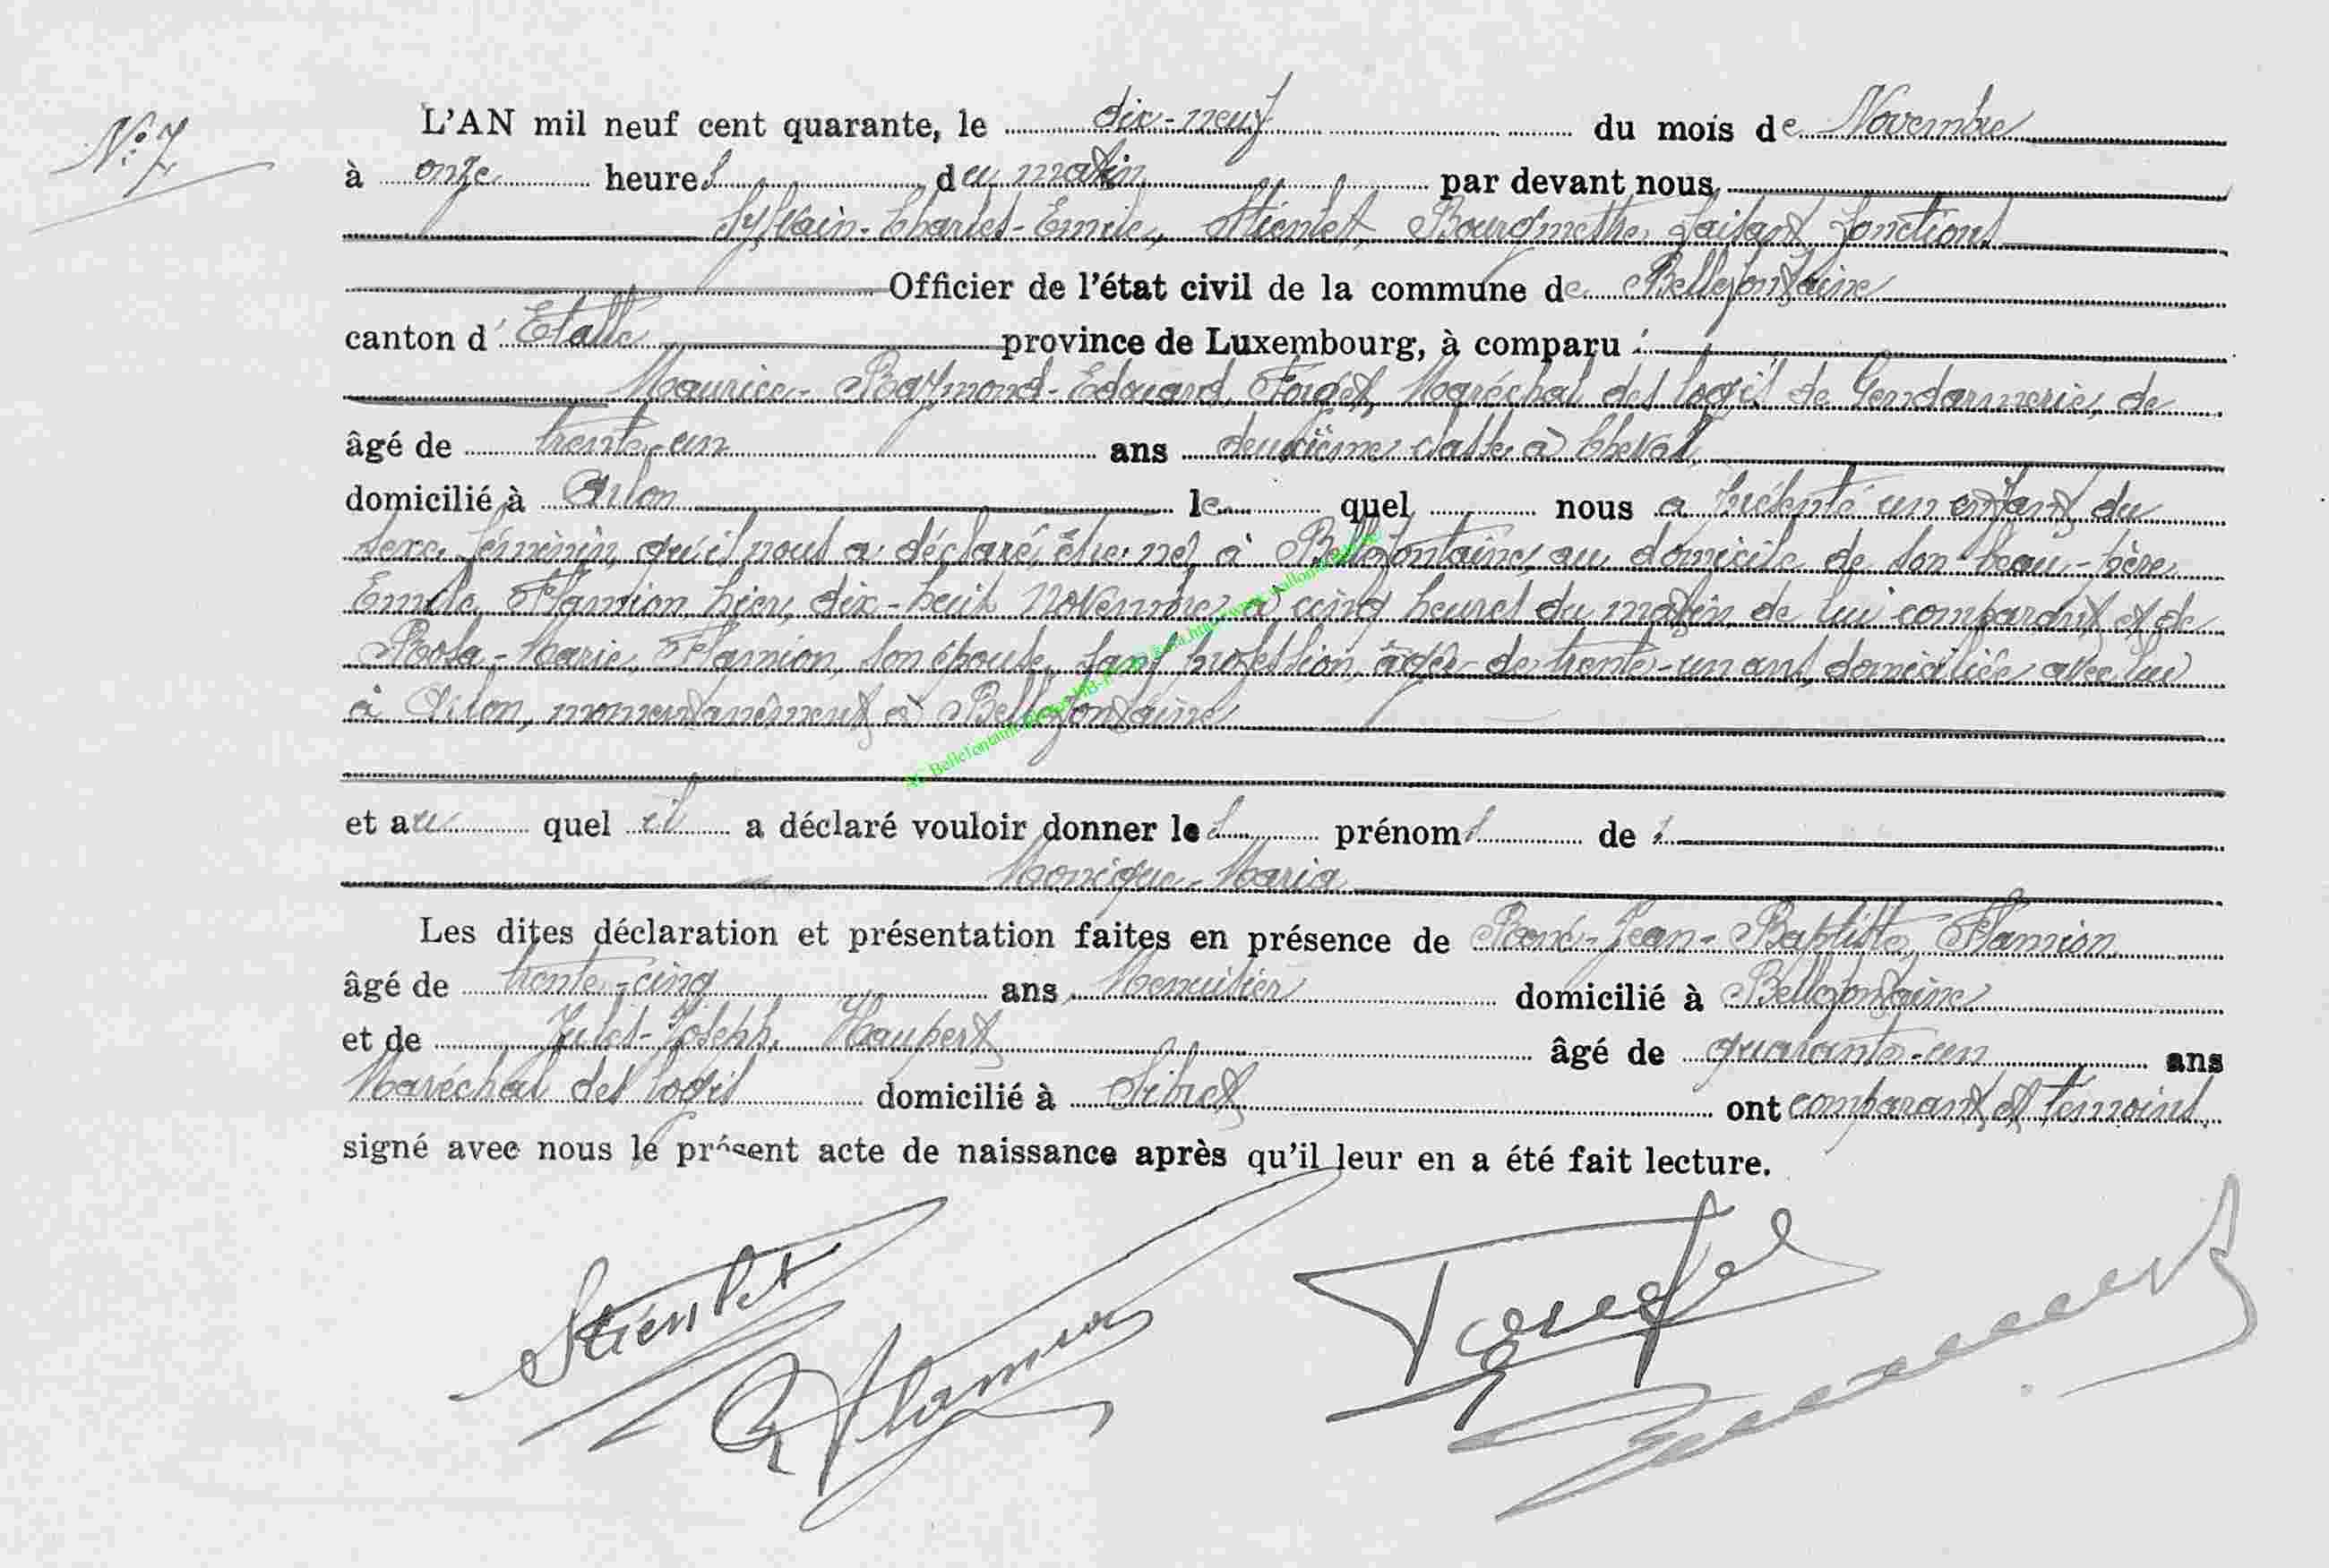 N° 7
L'AN mil neuf cent quarante, le dix-neuf du mois de Novembre
à onze heures du matin par devant nous,
Sylvain-Charles-Emile, Stienlet, Bourgmestre, faisant fonctions
Officier de l'état civil de la commune de Bellefontaine
canton d'Etalle province de Luxembourg, à comparu :
Maurice-Raymond-Edouard, Forget, Maréchal des logis de Gendarmerie, de
âgé de trente-un ans deuxième classe à cheval,
domicilié à Arlon lequel nous a présenté un enfant du
sexe féminin, qu'il nous a déclaré, être né, à Bellefontaine, au domicile de son beau-père
Emile, Flamion, hier, dix-huit novembre à cinq heures du matin, de lui comparant et de
Rosa-Marie, Flamion, son épouse, sans profession, âgée de trente-un ans, domiciliée avec lui
à Arlon, momentanément à Bellefontaine
et au quel il a déclaré vouloir donner les prénoms de :
Monique-Maria
Les dites déclaration et présentation faites en présence de René-Jean-Baptiste, Flamion
âgé de trente-cinq ans, Menuisier domicilié à Bellefontaine
et de Jules-Joseph, Haupert âgé de quarante-un ans
Maréchal des logis domicilié à Sibret ont comparant et témoins
signé avec nous le présent acte de naissance après qu'il leur en a été fait lecture.
Stienlet Flamion Forget